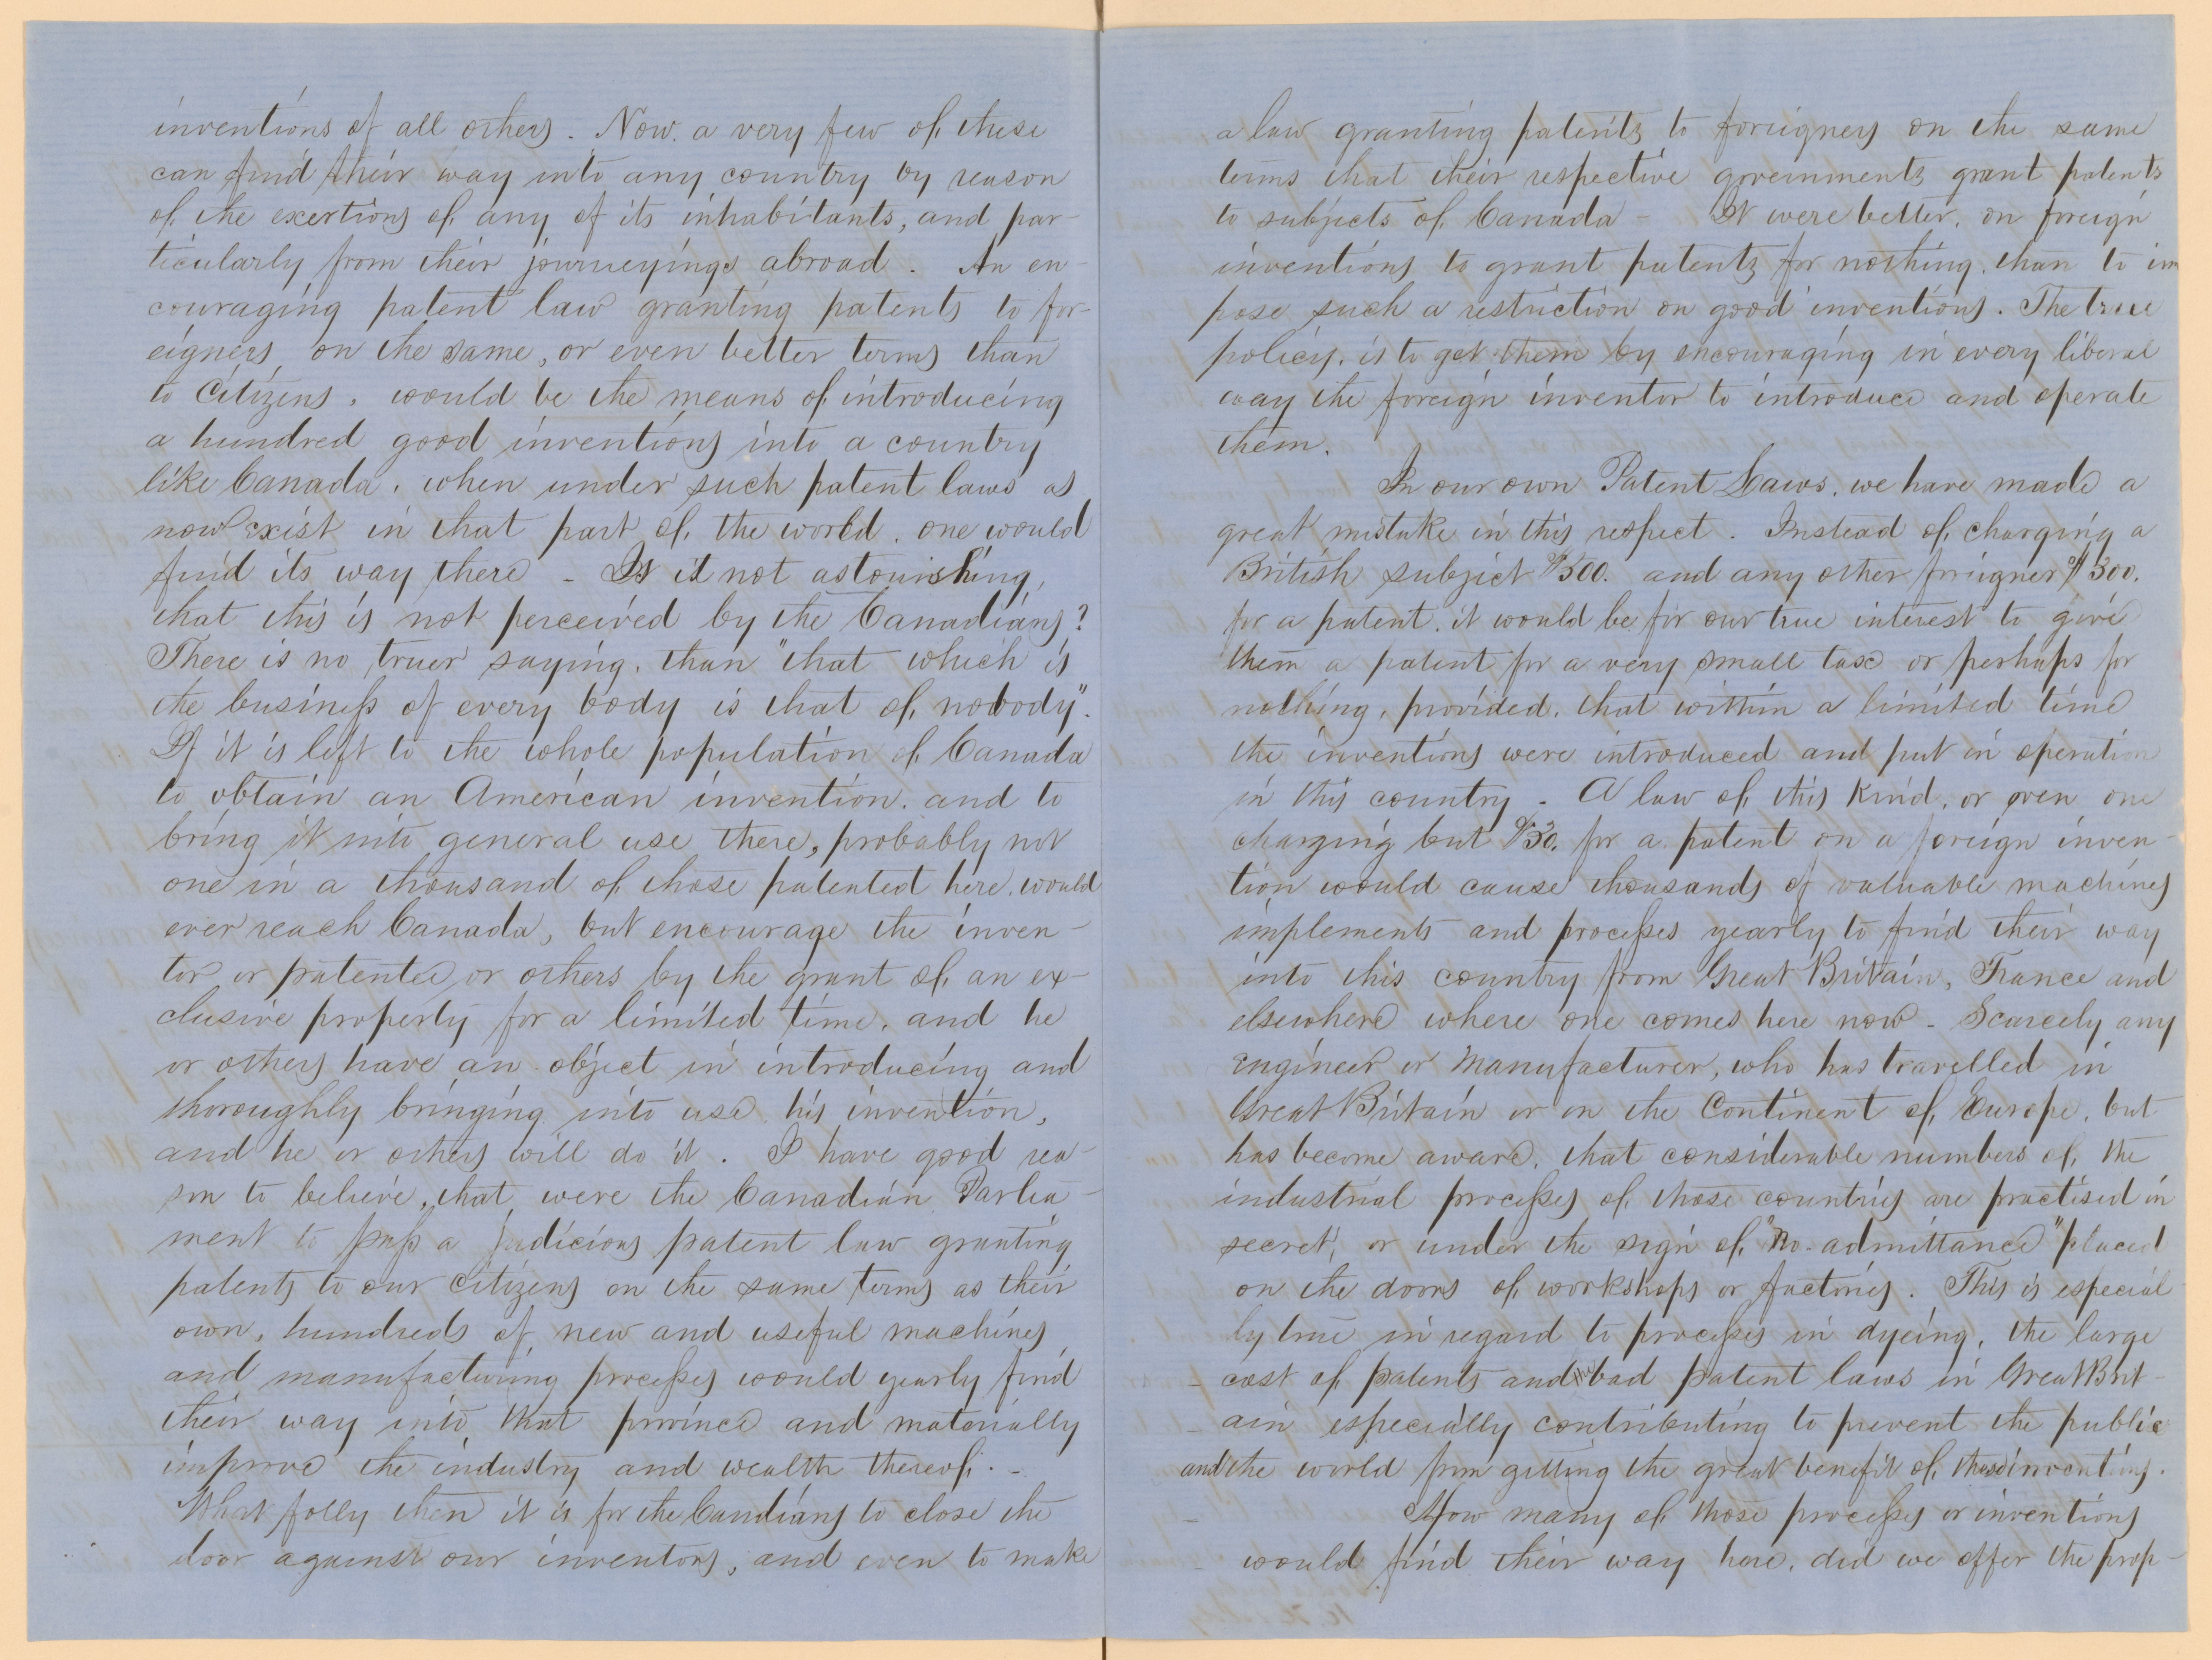 inventions of all others. Now. a very few of these
can find their way into any country by reason
of the exertions of any of its inhabitants, and par-
ticularly from their journeyings abroad. An en-
couraging patent law granting patents to for-
eigners on the same, or even better terms than
to Citizens, would be the means of introducing
a hundred good inventions into a country
like Canada, when under such patent laws as
now exist in that part of the world. one would
find its way there - Is it not astonishing,
that this is not perceived by the Canadians?
There is no truer saying, than "that which is
the business of every body is that of nobody".
If it is left to the whole population of Canada
to obtain an American invention. and to
bring it into general use there, probably not
one in a thousand of those patented here. would
ever reach Canada, but encourage the inven-
tor or patentee, or others by the grant of an ex-
clusive property for a limited time, and he
or others have an object in introducing and
thoroughly bringing into use his invention,
and he or others will do it. I have good rea-
son to believe, that were the Canadian Parlia-
ment to pass a judicious patent law granting
patents to our citizens on the same terms as their
own, hundreds of new and useful machines
and manufacturing processes would yearly find
their way into that province and materially
improve the industry and wealth thereof. -
What folly then it is for the Candians to close the
door against our inventors, and even to make
a law granting patents to foreigners on the same
terms that their respective governments grant patents
to subjects of Canada - It were better, on foreign
inventions to grant patents for nothing. than to im
pose such a restriction on good inventions. The true
policy, is to get them by encouraging in every liberal
way the foreign inventor to introduce and operate
them.
In our own Patent Laws, we have made a
great mistake in this respect. Instead of charging a
British subject $500. and any other foreigner $300.
for a patent, it would be for our true interest to give
them a patent for a very small tax or perhaps for
nothing, provided, that within a limited time
the inventions were introduced and put in operation
in this country - A law of this kind, or even one
charging but $30. for a patent on a foreign inven-
tion would cause thousands of valuable machines
implements and processes yearly to find their way
into this country from Great Britain, France and
elsewhere where one comes here now - Scarcely any
engineer or manufacturer, who has travelled in
Great Britain or on the Continent of Europe, but
has become aware, that considerable numbers of the
industrial processes of those countries are practised in
secret, or under the sign of "No-admittance" placed
on the doors of workshops or factories. This is especial
ly true in regard to processes in dyeing, the large
- cost of patents and bad patent laws in Great Brit-
- ain especially contributing to prevent the public
and the world from getting the great benefit of these inventions.
- How many of those processes or inventions
would find their way here, did we offer the prop-